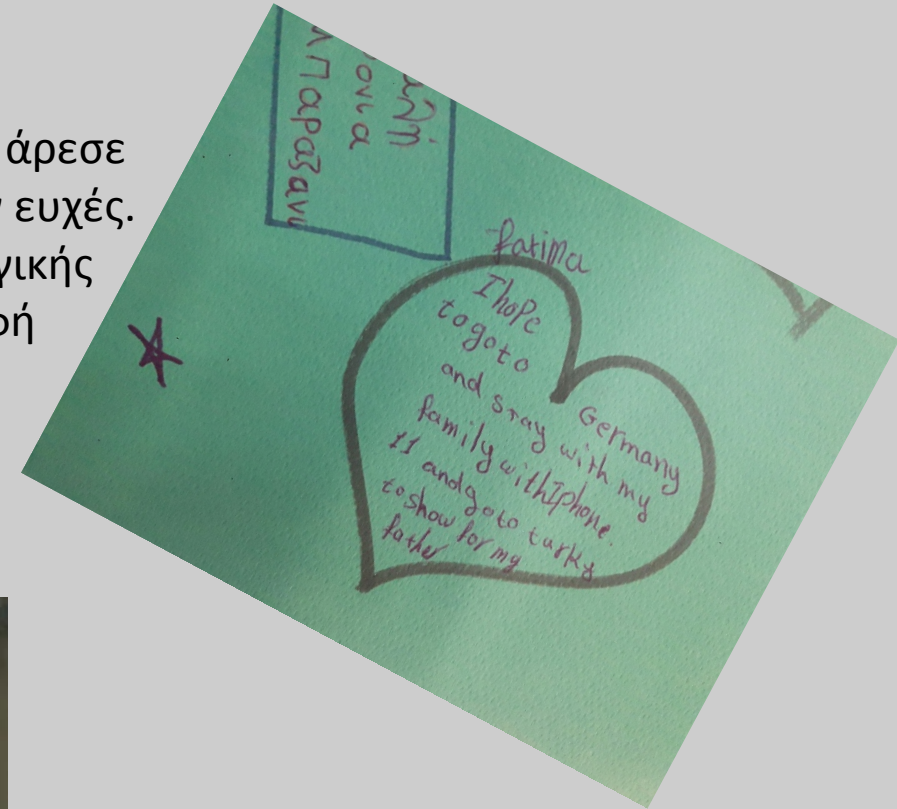 άρεσε
ευχές.
Παραξαν
fatima
I hope
to go to Germany
and stay with my
family with Iphone.
11 and go to turky
to show for my
father